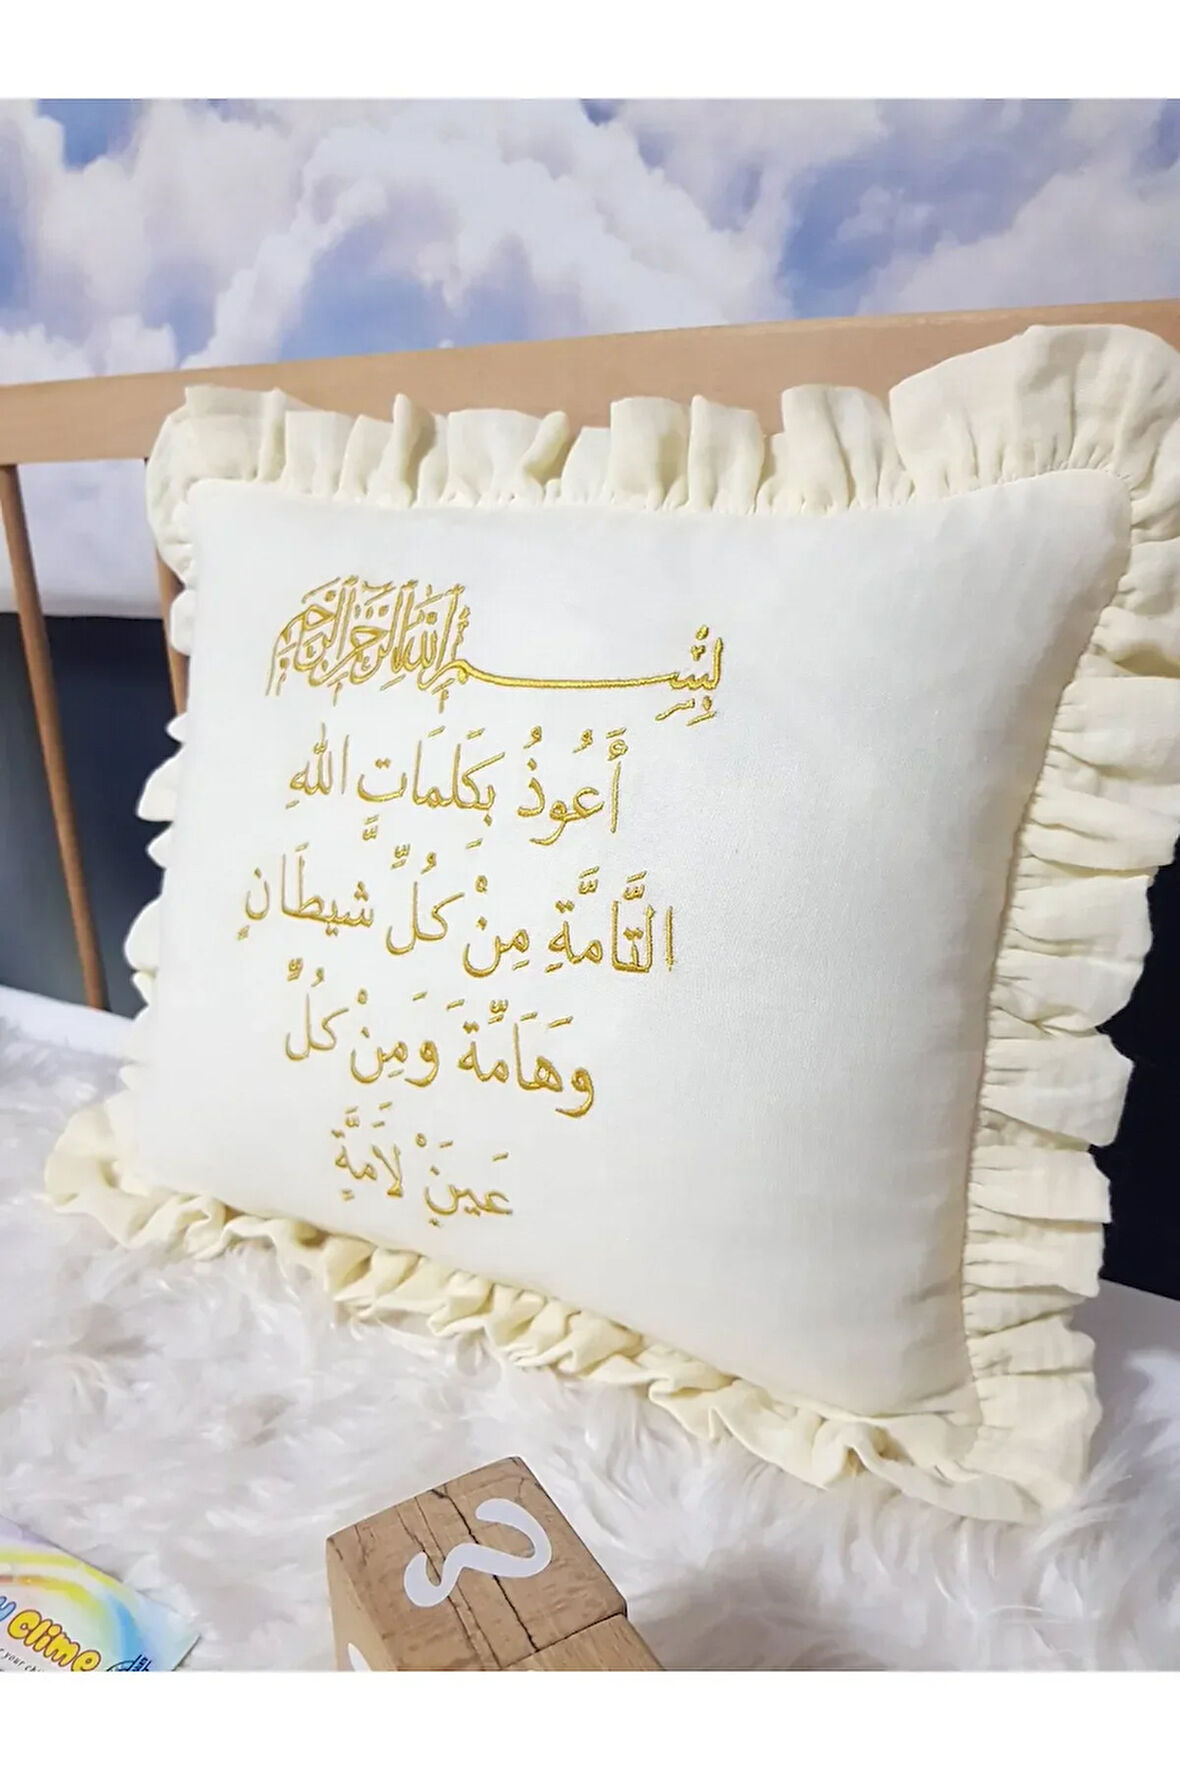 بِسْمِ اللَّهِ الرَّحْمَٰنِ الرَّحِيمِ
أَعُوذُ بِكَلِمَاتِ اللهِ
التَّامَّةِ مِنْ كُلِّ شَيطَانٍ
وَهَامَّةٍ وَمِنْ كُلِّ
عَينٍ لاَمَّةٍ
clime